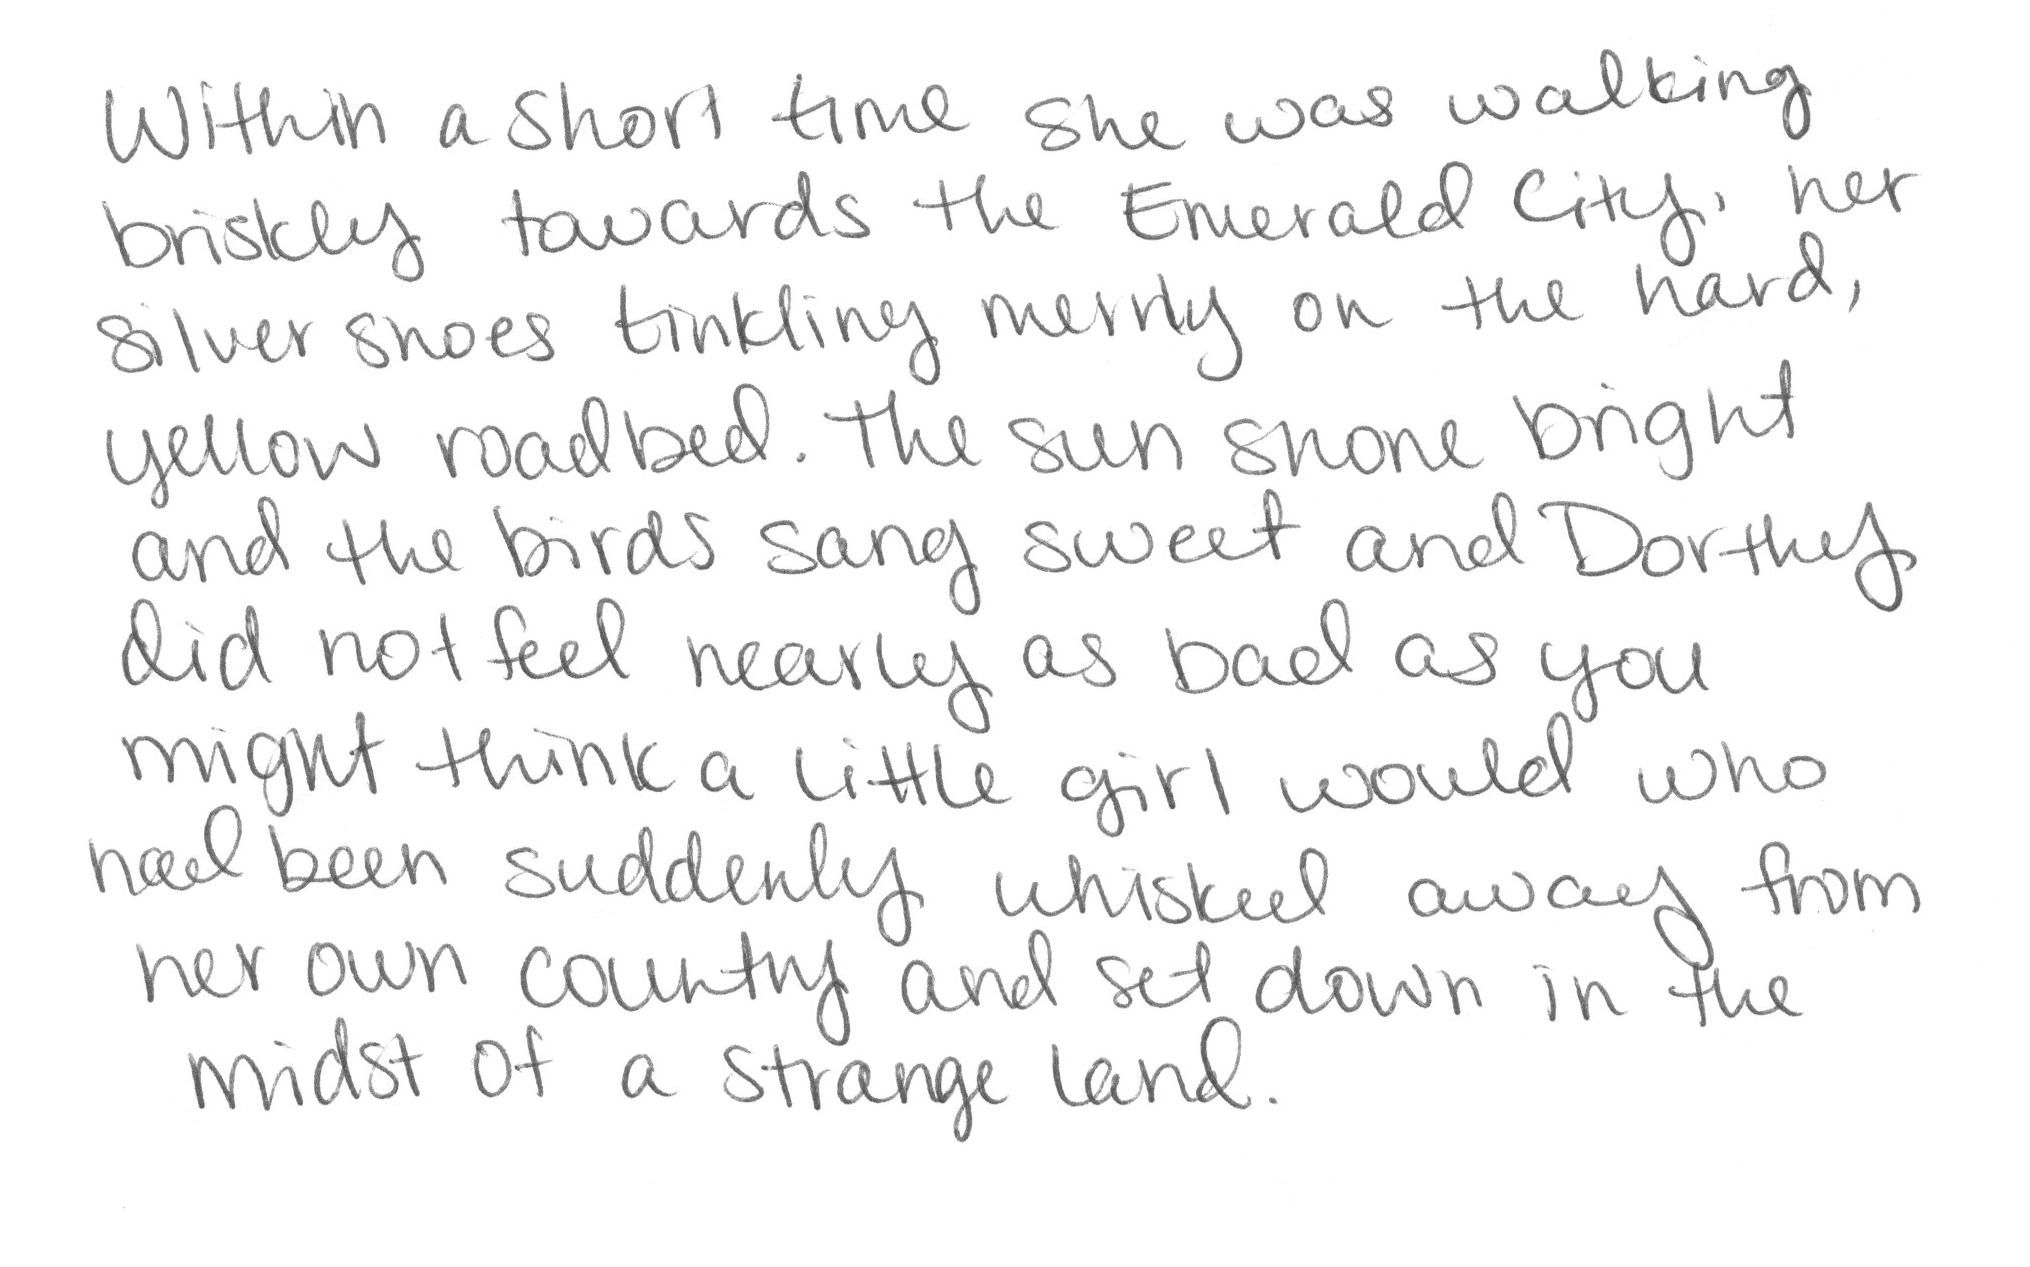 Within a short time she was walking
briskly towards the Emerald City, her
silver shoes tinkling merrily on the hard,
yellow roadbed. The sun shone bright
and the birds sang sweet and Dorthy
did not feel nearly as bad as you
might think a little girl would who
had been suddenly whisked away from
her own country and set down in the
midst of a strange land.